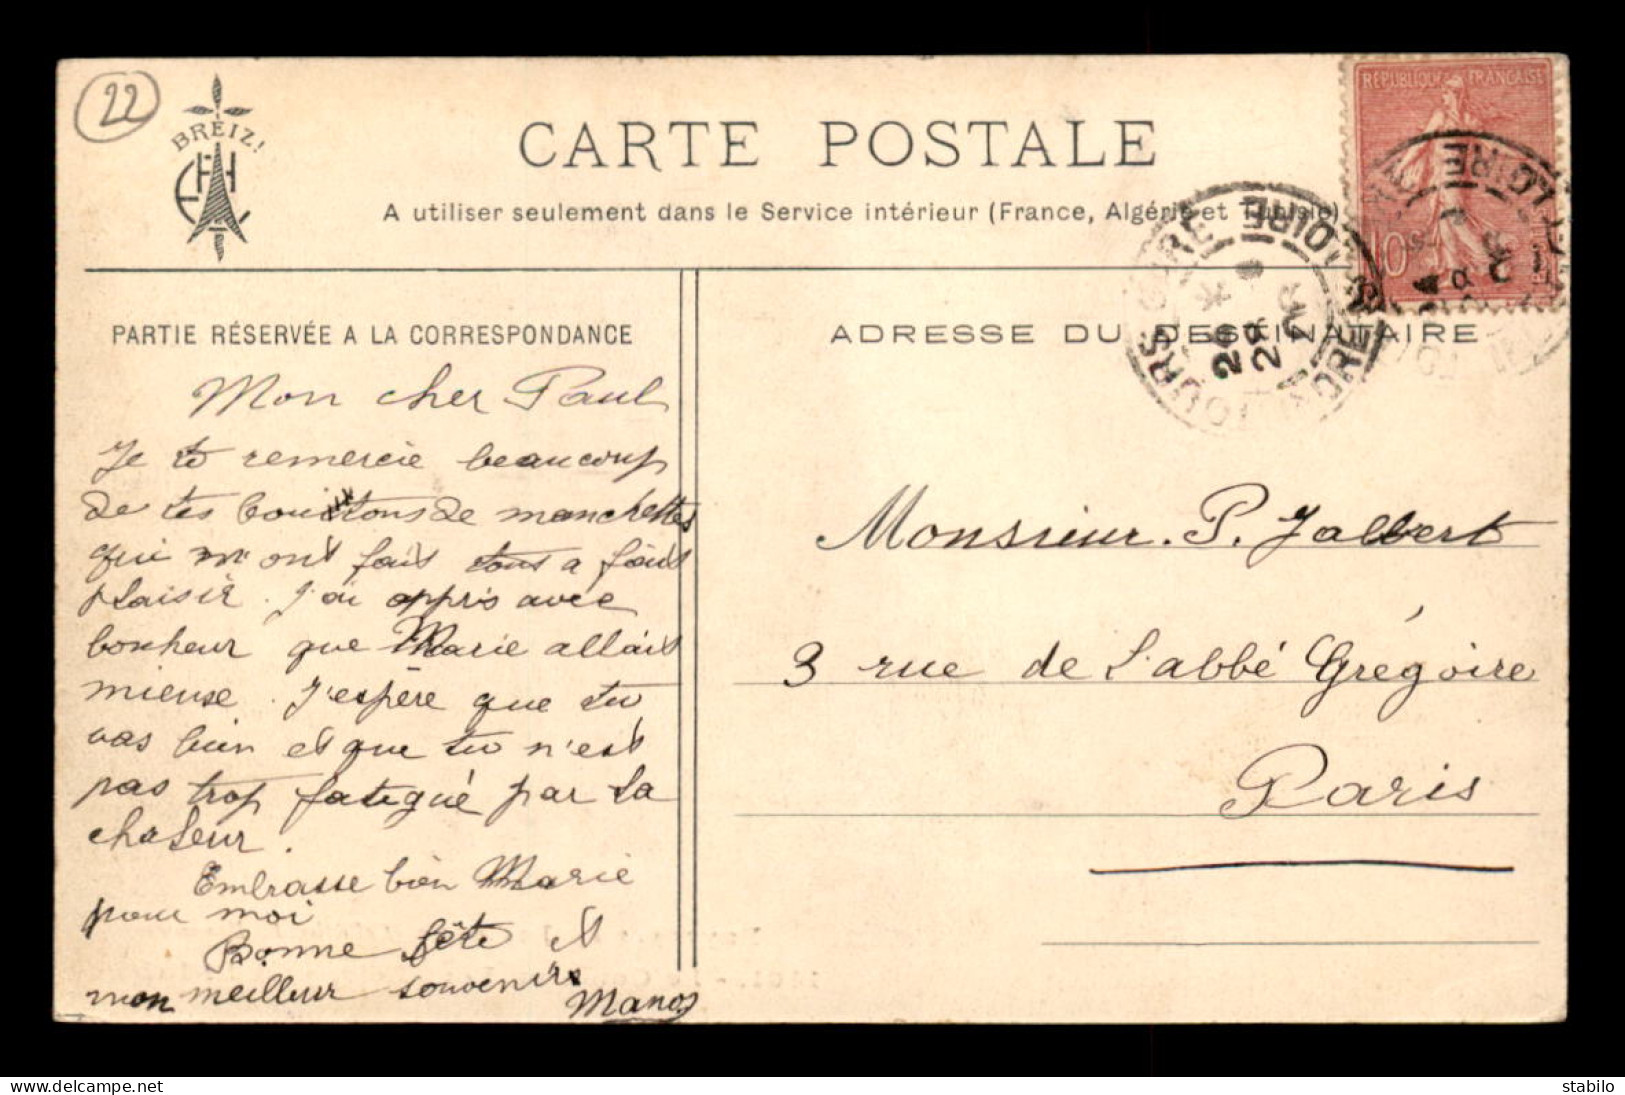 22
BREIZ!
CARTE POSTALE
A utiliser seulement dans le Service intérieur (France, Algérie et Tunisie)
REPUBLIQUE FRANÇAISE
10
TOURS GARE
INDRE ET LOIRE
PARTIE RÉSERVÉE A LA CORRESPONDANCE
Mon cher Paul
Je te remercie beaucoup
de tes bouttons de manchettes
qui m'ont fait tout a fait
plaisir. J'ai appris avec
bonheur que Marie allait
mieuse. J'espère que tu
vas bien et que tu n'est
pas trop fatigué par la
chaleur.
Embrasse bien Marie
pour moi
Bonne fête et
mon meilleur souvenirs
ADRESSE DU DESTINATAIRE
Monsieur. P. Jalbert
3 rue de l'abbé Grégoire
Paris
stabilo